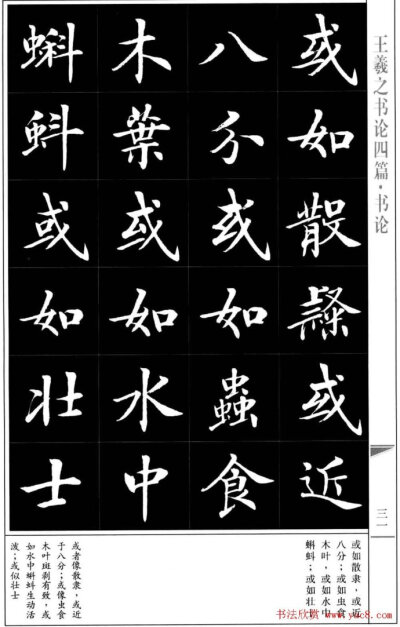 王羲之书论四篇·书论
或如散隸或近
八分或如蟲食
木葉或如水中
蝌蚪或如壮士
三一
或如散隶,或近
八分;或如虫食
木叶,或如水中
蝌蚪;或如壮
或者像散隶,或近
于八分;或像虫食
木叶斑剥有致,或
如水中蝌蚪生动活
泼;或似壮士
书法欣赏 www.yac8.com